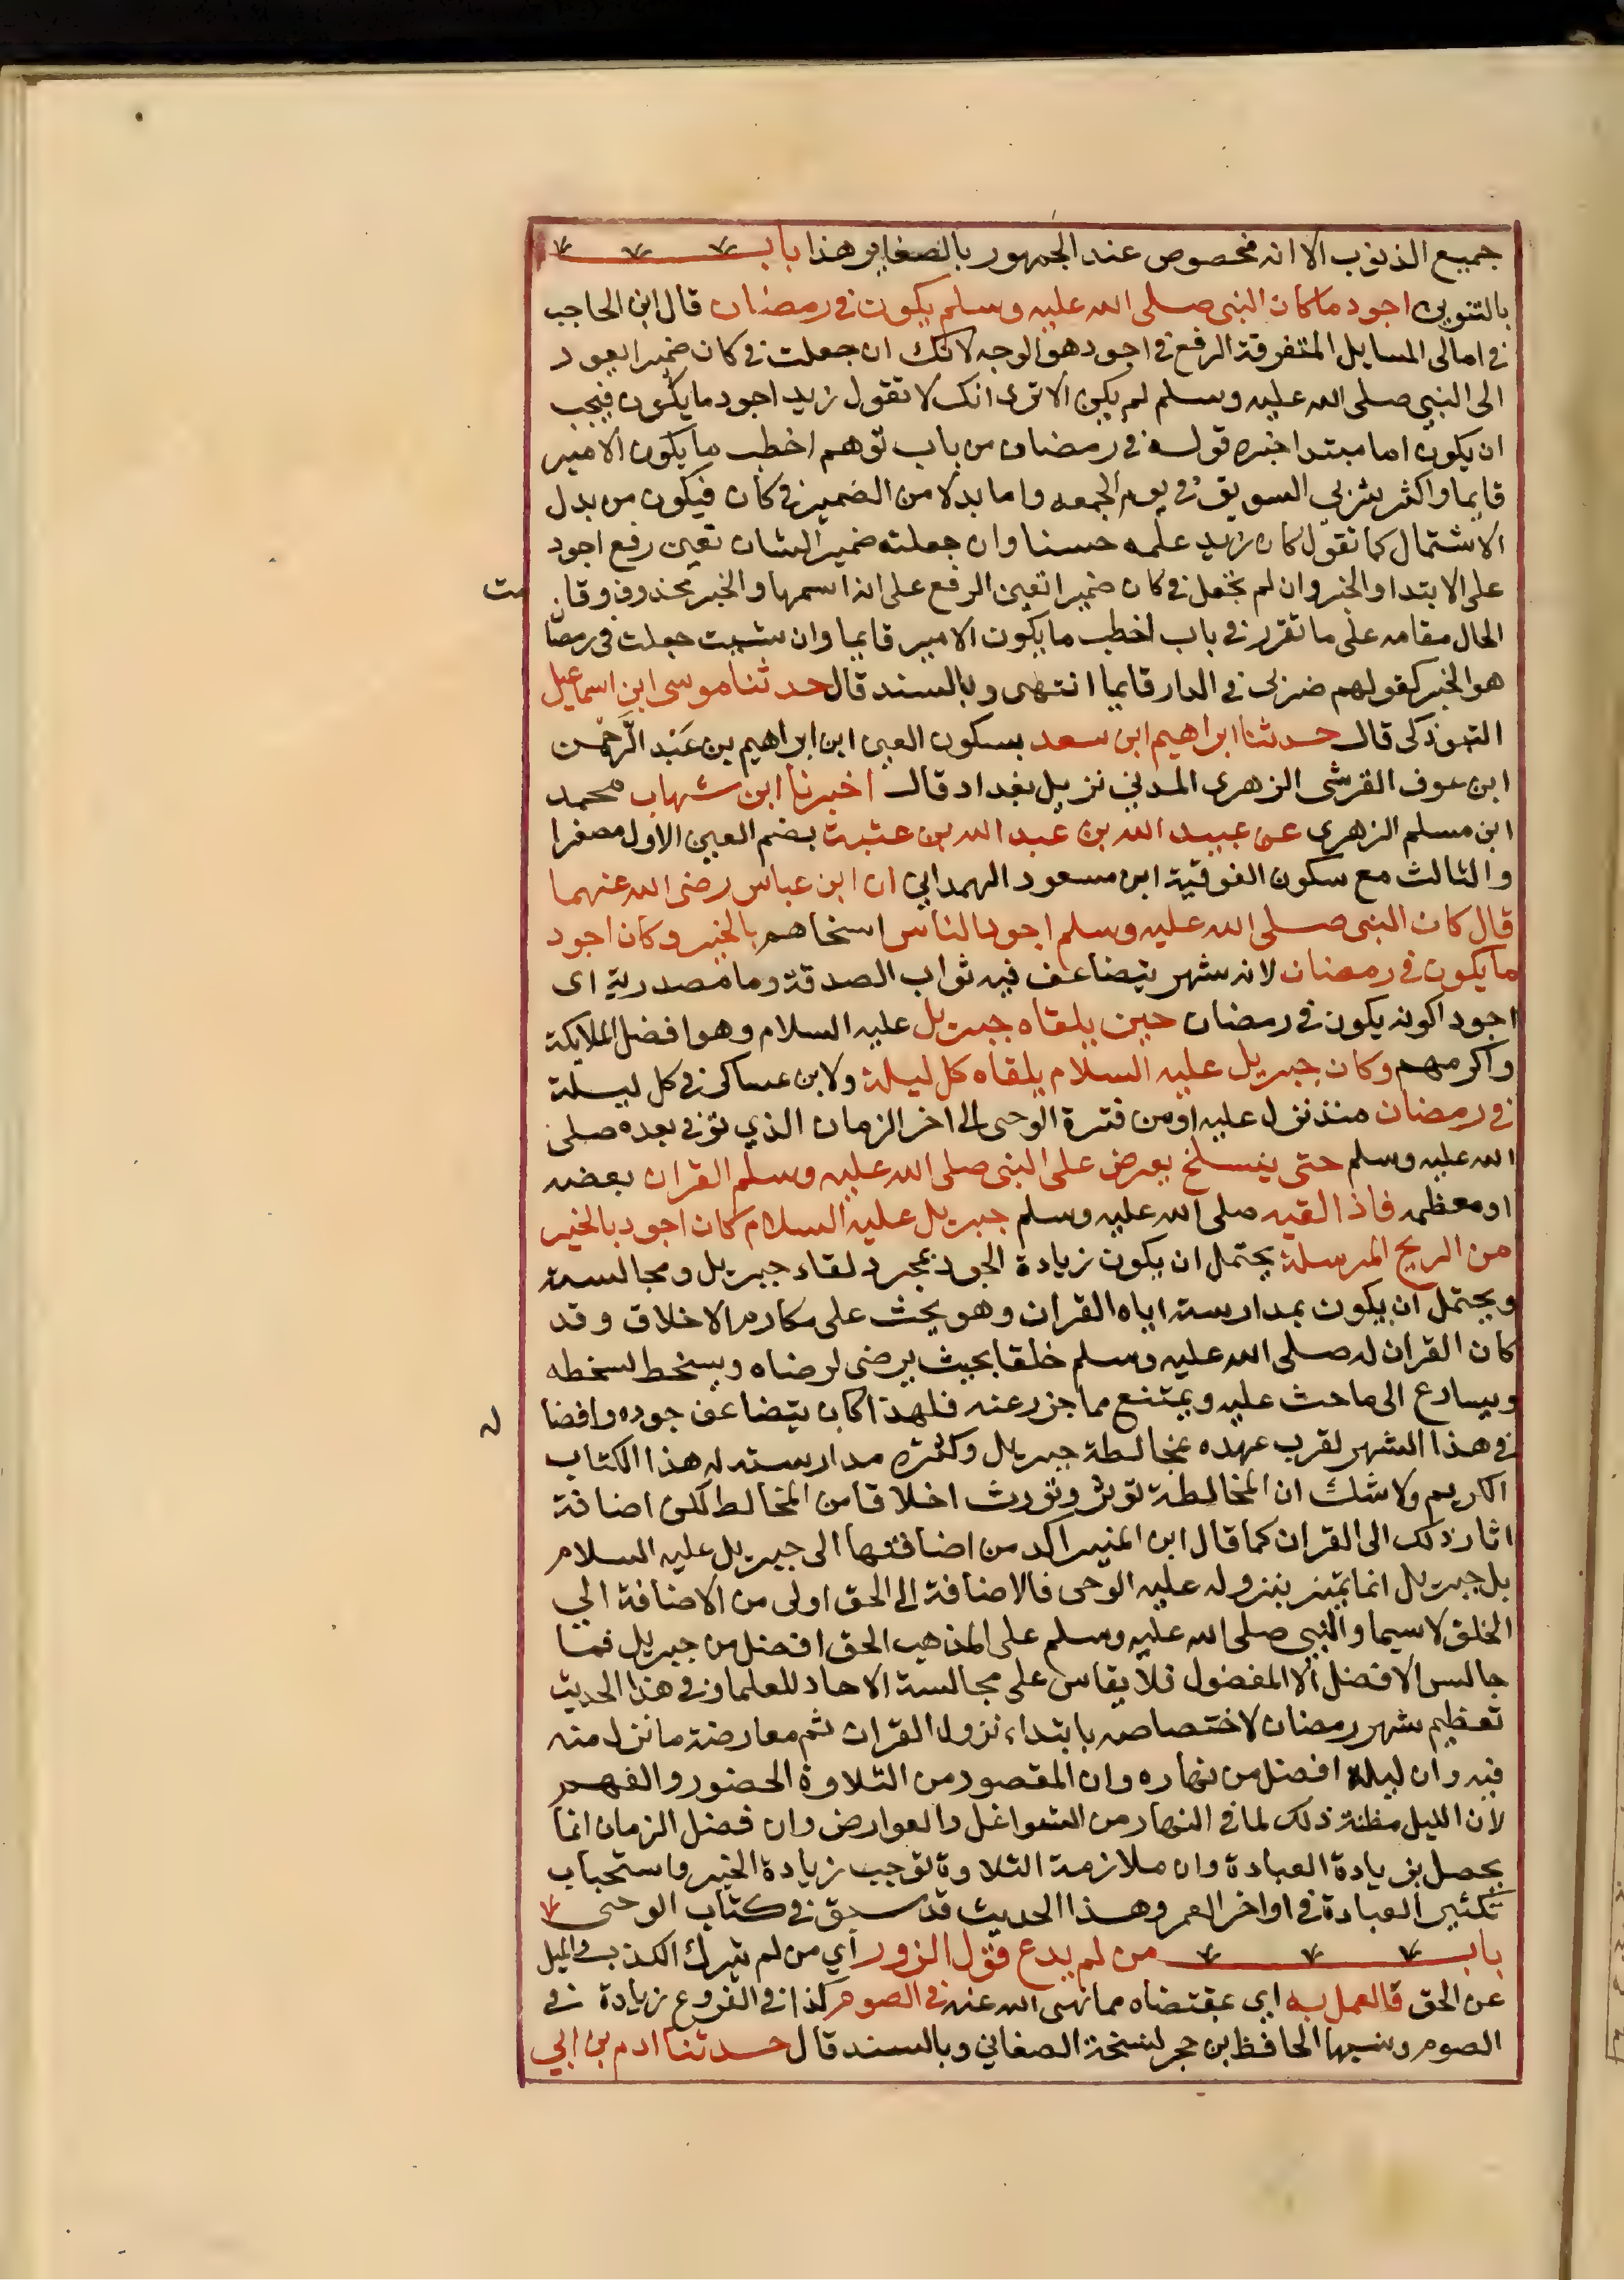 جميع الذنوب الا انه مخصوص عند الجمهور بالصغاير هذا باب
بالتنوين اجود ما كان النبي صلى الله عليه وسلم يكون في رمضان قال ابن الحاجب
في امالى المسايل المتفرقة الرفع في اجود هو الوجه لانك ان جعلت في كان ضميرا يعود
الى النبي صلى الله عليه وسلم لم يكن الا ترى انك لا تقول زيد اجود ما يكون فيجب
ان يكون اما مبتدا خبره قوله في رمضان من باب توهم اخطب ما يكون الامير
قايما واكثر شربي السويق في يوم الجمعه واما بدلا من الضمير في كان فيكون من بدل
الاشتمال كما تقول كان زيد علمه حسنا وان جعلته ضمير الشان تعين رفع اجود
على الابتدا والخبر وان لم تجعل في كان ضميرا تعين الرفع على انه اسمها والخبر محذوف وقا مت
الحال مقامه على ما تقرر في باب اخطب ما يكون الامير قايما وان شيت جعلت في رمضان
هو الخبر كقولهم ضربي في الدار قايما انتهى وبالسند قال حدثنا موسى ابن اسماعيل
التبوذكى قال حدثنا ابراهيم ابن سعد بسكون العين ابن ابراهيم بن عبد الرحمن
ابن عوف القرشى الزهرى المدني نزيل بغداد قال اخبرنا ابن شهاب محمد
ابن مسلم الزهري عن عبيد الله بن عبد الله بن عتبة بضم العين الاول مصغرا
والثالث مع سكون الفوقية ابن مسعود الهمداني ان ابن عباس رضى الله عنهما
قال كان النبى صلى الله عليه وسلم اجود الناس اسخاهم بالخير وكان اجود
ما يكون في رمضان لانه شهر يتضاعف فيه ثواب الصدقة وما مصدرية اى
اجود اكونه يكون في رمضان حين يلقاه جبريل عليه السلام وهو افضل الملايكة
واكرمهم وكان جبريل عليه السلام يلقاه كل ليلة ولابن عساكر في كل ليلة
في رمضان منذ نزل عليه او من فترة الوحى الى اخر الزمان الذي توفى بعده صلى
الله عليه وسلم حتى ينسلخ يعرض على النبى صلى الله عليه وسلم القران بعضه
او معظمه فاذا لقيه صلى الله عليه وسلم جبريل عليه السلام كان اجود بالخير
من الريح المرسلة يحتمل ان يكون زيادة الجود بمجرد لقاء جبريل ومجالسته
ويحتمل ان يكون بمدارسته اياه القران وهو يحث على مكارم الاخلاق وقد
كان القران له صلى الله عليه وسلم خلقا بحيث يرضى لرضاه ويسخط لسخطه
ويسارع الى ما حث عليه ويمتنع مما جزر عنه فلهذا كان يتضاعف جوده وافضا له
في هذا الشهر لقرب عهده بمخالطة جبريل وكثرة مدارسته له هذا الكتاب
الكريم ولا شك ان المخالطة توثر وتورث اخلاقا من المخالط لكن اضافة
اثار ذلك الى القران كما قال ابن المنير اكد من اضافتها الى جبريل عليه السلام
بل جبريل انما تميز بنزوله عليه الوحى فالاضافة الى الحق اولى من الاضافة الي
الخلق لا سيما والنبي صلى الله عليه وسلم على المذهب الحق افضل من جبريل فما
جالس الافضل الا المفضول فلا يقاس على مجالسة الاحاد للعلما وفي هذا الحديث
تعظيم شهر رمضان لاختصاصه بابتداء نزول القران ثم معارضة ما نزل منه
فيه وان ليله افضل من نهاره وان المقصود من التلاوة الحضور والفهم
لان الليل مظنة ذلك لما في النهار من الشواغل والعوارض وان فضل الزمان انما
يحصل بزيادة العبادة وان ملازمة التلاوة توجب زيادة الخير واستحباب
تكثير العبادة في اواخر العمر وهذا الحديث قد سبق في كتاب الوحى
باب من لم يدع قول الزور اي من لم يترك الكذب والميل
عن الحق والعمل به اي بمقتضاه مما نهى الله عنه في الصوم كذا في الفروع زيادة في
الصوم ونسبها الحافظ بن حجر لنسخة الصغاني وبالسند قال حدثنا ادم بن ابي